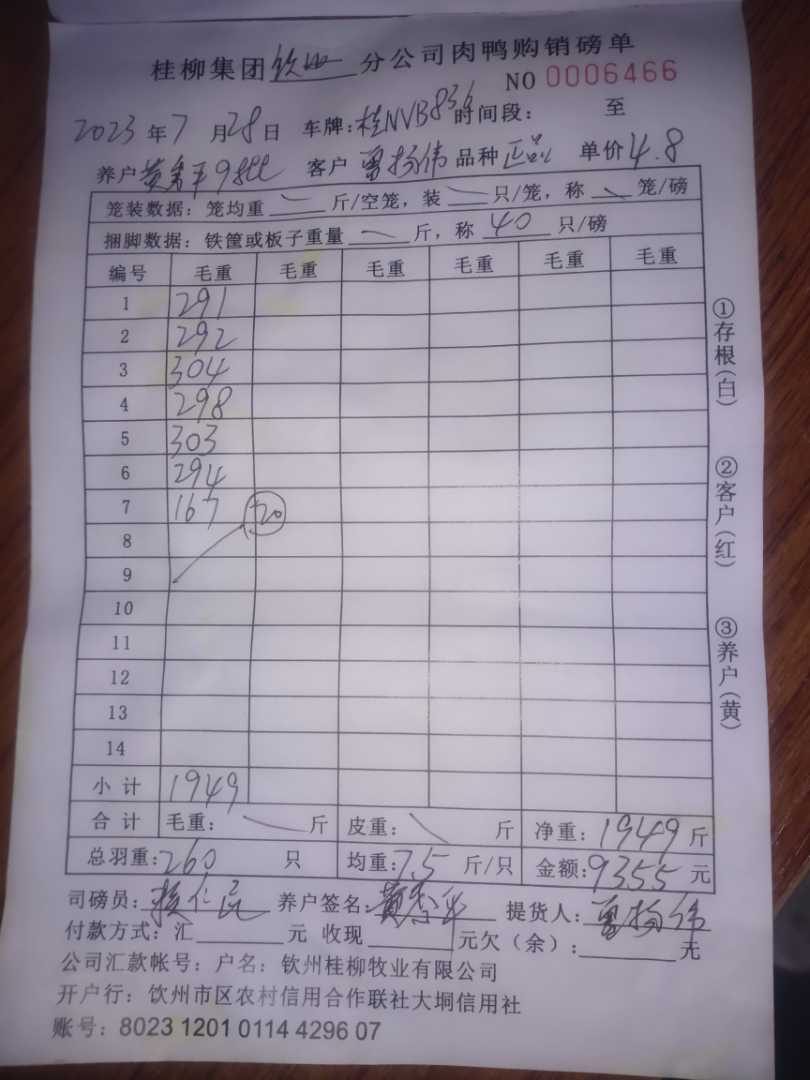 桂柳集团钦州分公司肉鸭购销磅单
NO 0006466
2023年7月28日 车牌:桂NVB836 时间段: 至
养户 黄 平 客户 扬伟 品种 正品 单价 4.8
笼装数据: 笼均重 — 斤/空笼, 装 — 只/笼, 称 — 笼/磅
捆脚数据: 铁筐或板子重量 — 斤, 称 40 只/磅
编号 毛重 毛重 毛重 毛重 毛重 毛重
1 291
2 292
3 304
4 298
5 303
6 294
7 167 +20
8
9
10
11
12
13
14
小计 1949
合计 毛重: 斤 皮重: 斤 净重: 1949 斤
总羽重: 260 只 均重: 7.5 斤/只 金额: 9355 元
司磅员: 养户签名: 黄 平 提货人: 扬伟
付款方式: 汇 元 收现 元欠(余): 元
公司汇款帐号: 户名: 钦州桂柳牧业有限公司
开户行: 钦州市区农村信用合作联社大垌信用社
账号: 8023 1201 0114 4296 07
①存根(白)
②客户(红)
③养户(黄)